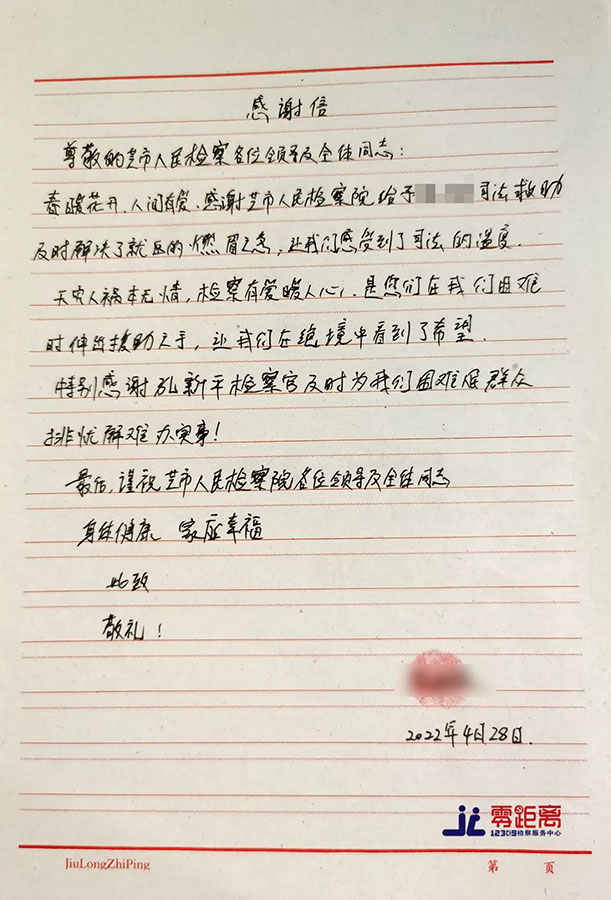 感谢信
尊敬的芒市人民检察各位领导及全体同志：
春暖花开、人间有爱、感谢芒市人民检察院给予 司法救助
及时解决了就医的燃眉之急，让我们感受到了司法的温度.
天灾人祸本无情，检察有爱暖人心，是您们在我们困难
时伸出援助之手，让我们在绝境中看到了希望.
特别感谢 新平检察官及时为我们困难屁群众
排忧解难办实事！
最后，谨祝芒市人民检察院各位领导及全体同志
身体健康 家庭幸福
此致
敬礼！
2022年4月28日.
零距离
12309检察服务中心
JiuLongZhiPing
第 页